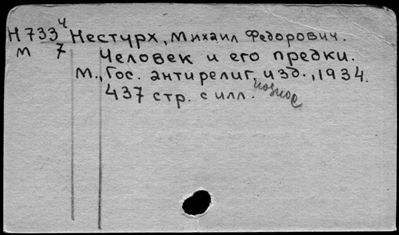 Н 733 4 Нестурх, Михаил Федорович.
М 7 Человек и его предки.
М., Гос. антирелиг. изд., 1934.
437 стр. с илл.